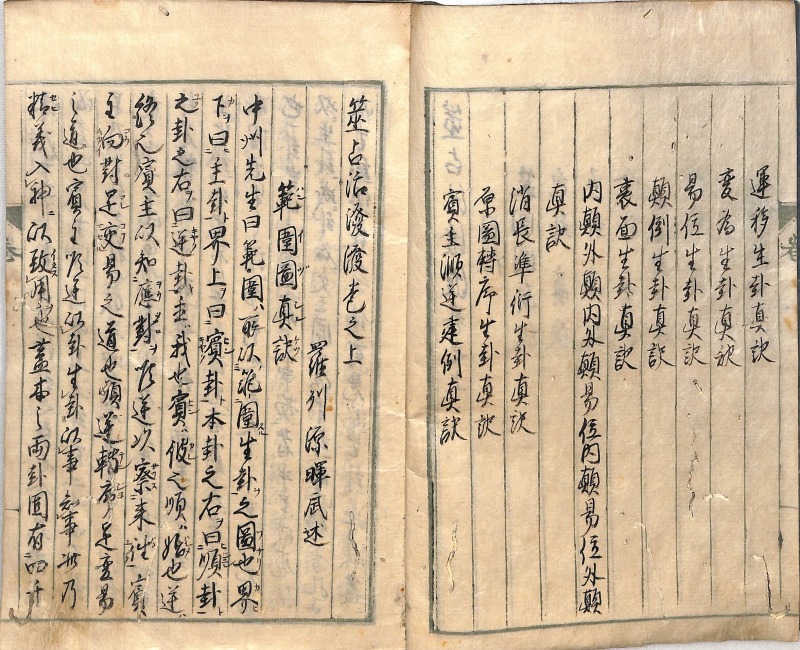 運移生卦真訣
変為生卦真訣
易位生卦真訣
顛倒生卦真訣
裏面生卦真訣
内顛外顛内外顛易位内顛易位外顛
真訣
消長準衍生卦真訣
原圖轉序生卦真訣
賓主順逆建例真訣
筮占活溌溌巻之上
羅州 源暉 述
範圍圖真訣
中州先生曰範圍ハ所以範圍生卦之圖也界
下曰主卦界上曰賓卦本卦之右曰順卦
之卦之右曰逆卦主ハ我也賓ハ彼之順ハ始也逆
終之賓主以知應對順逆以察来往賓
主向對是変易之道也順逆轉序是変易
之道也賓主順逆以卦生卦以事知事此乃
精義入神以致用也蓋本之両卦圖有四千